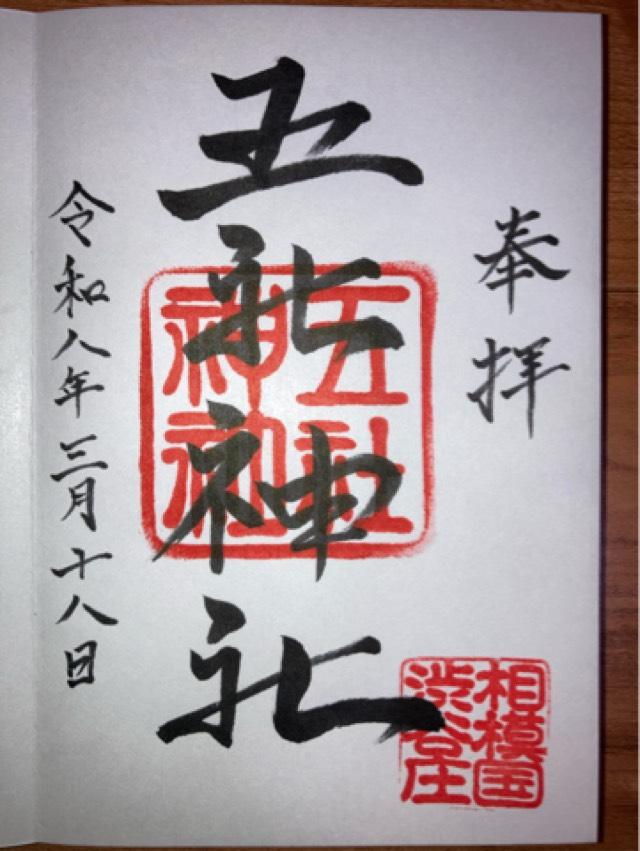 奉拝
五社神社
五社
神社
相模国
渋谷庄
令和八年三月十八日